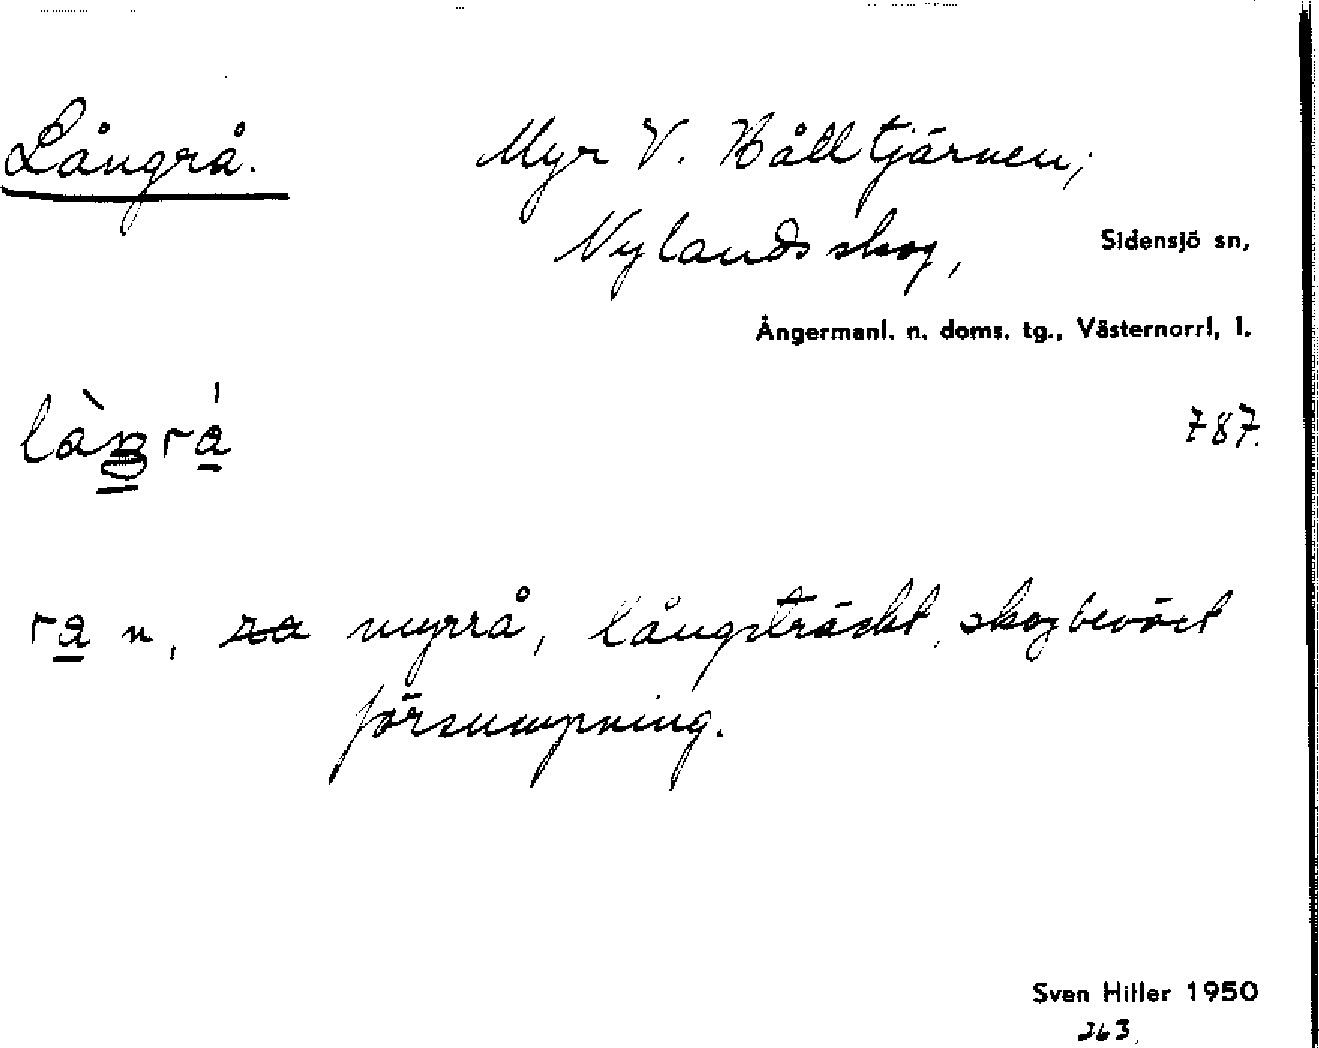 Långrå.
Myr V. Hålltjärnen;
Nylands skog,
Sidensjö sn,
Ångermanl. n. doms. tg., Västernorrl. l.
787.
ra n, myrrå, långsträckt, skogbeväxt
försumpning.
Sven Hitler 1950
263.